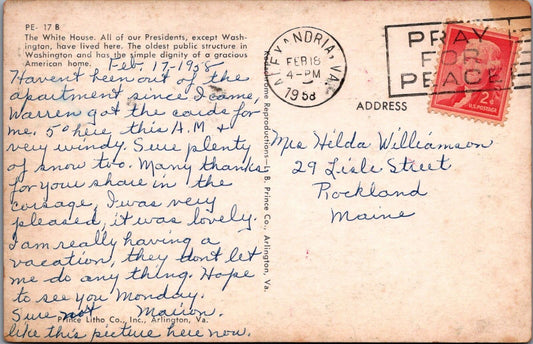 PE- 17 B
The White House. All of our Presidents, except Wash-
ington, have lived here. The oldest public structure in
Washington and has the simple dignity of a gracious
American home.
Feb 17-1958
Haven't been out of the
apartment since I came,
Warren got the cards for
me. 5° here this A.M. &
very windy. Sure plenty
of snow too. Many thanks
for your share in the
corsage, I was very
pleased, it was lovely.
I am really having a
vacation, they dont let
me do any thing. Hope
to see you Monday.
Sure not Marion.
like this picture here now.
Prince Litho Co., Inc., Arlington, Va.
Kodachrome Reproductions—L. B. Prince Co., Arlington, Va.
ALEXANDRIA, VA.
FEB 18
4-PM
1958
PRAY
FOR
PEACE
2¢
U.S. POSTAGE
ADDRESS
Mrs Hilda Williamson
29 Lisle Street
Rockland
Maine